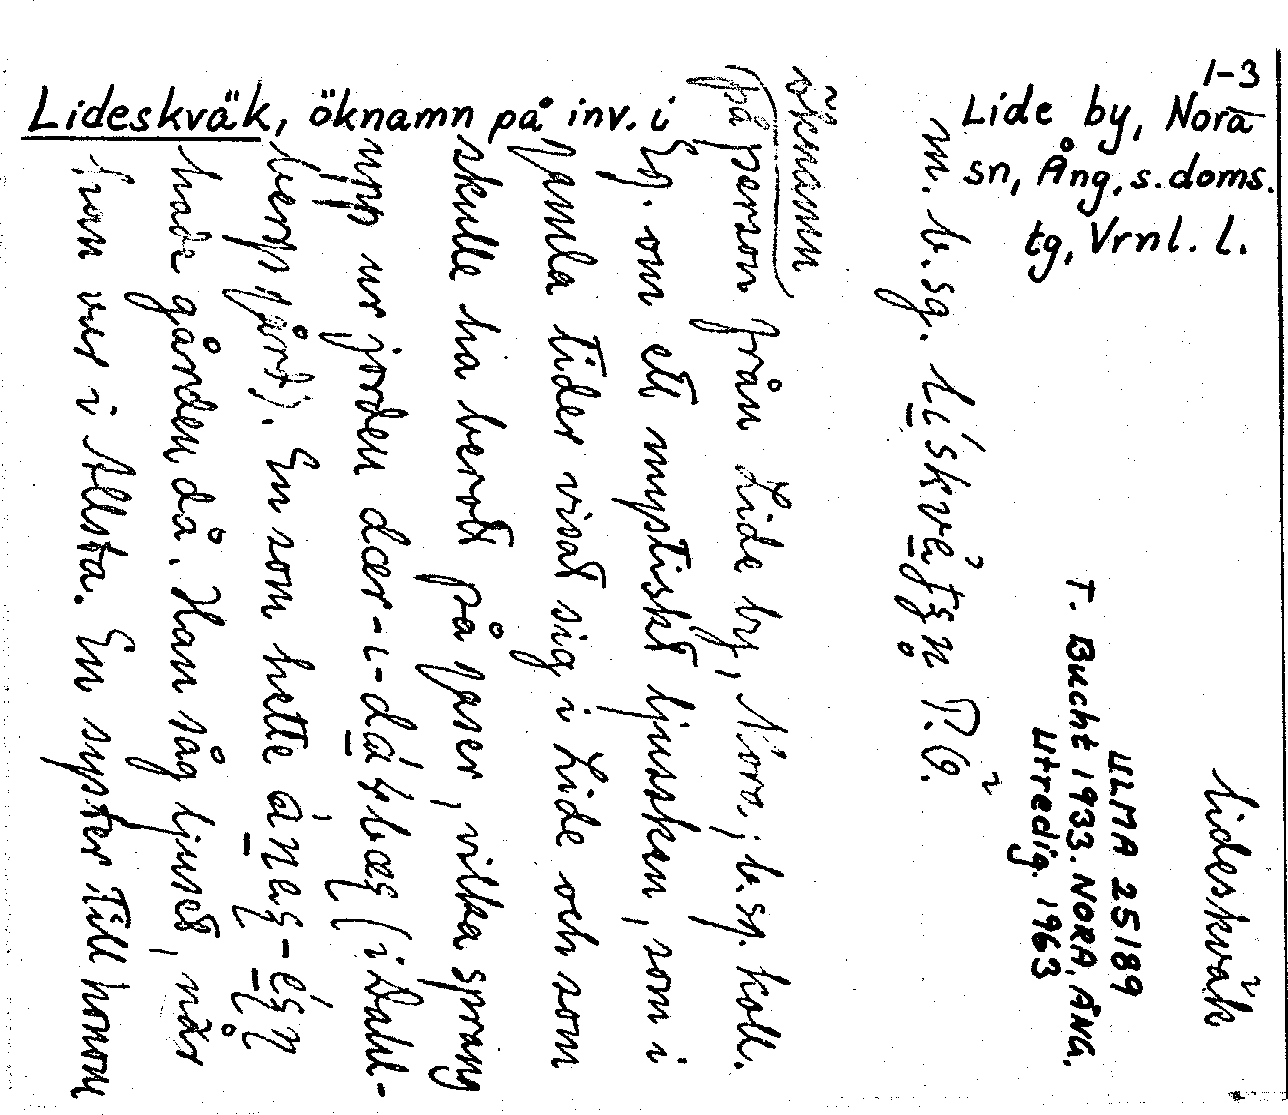 1-3
Lideskväk, öknamn på inv. i Lide by, Nora
sn, Ång. s. doms.
tg, Vrnl. l.
lideskväk
ULMA 25189
T. Bucht 1933. NORA, ÅNG.
Utredig. 1963
m. b.sg.
öknamn
på person från Lide by, Nora; b.sg. koll.
Ex. om ett mystiskt ljussken, som i
gamla tider visat sig i Lide och som
skulle ha berott på gaser, vilka sprang
upp ur jorden (i Dahl-
bergs gård). En som hette
hade gården då. Han såg ljuset, när
han var i Allsta. En syster till honom